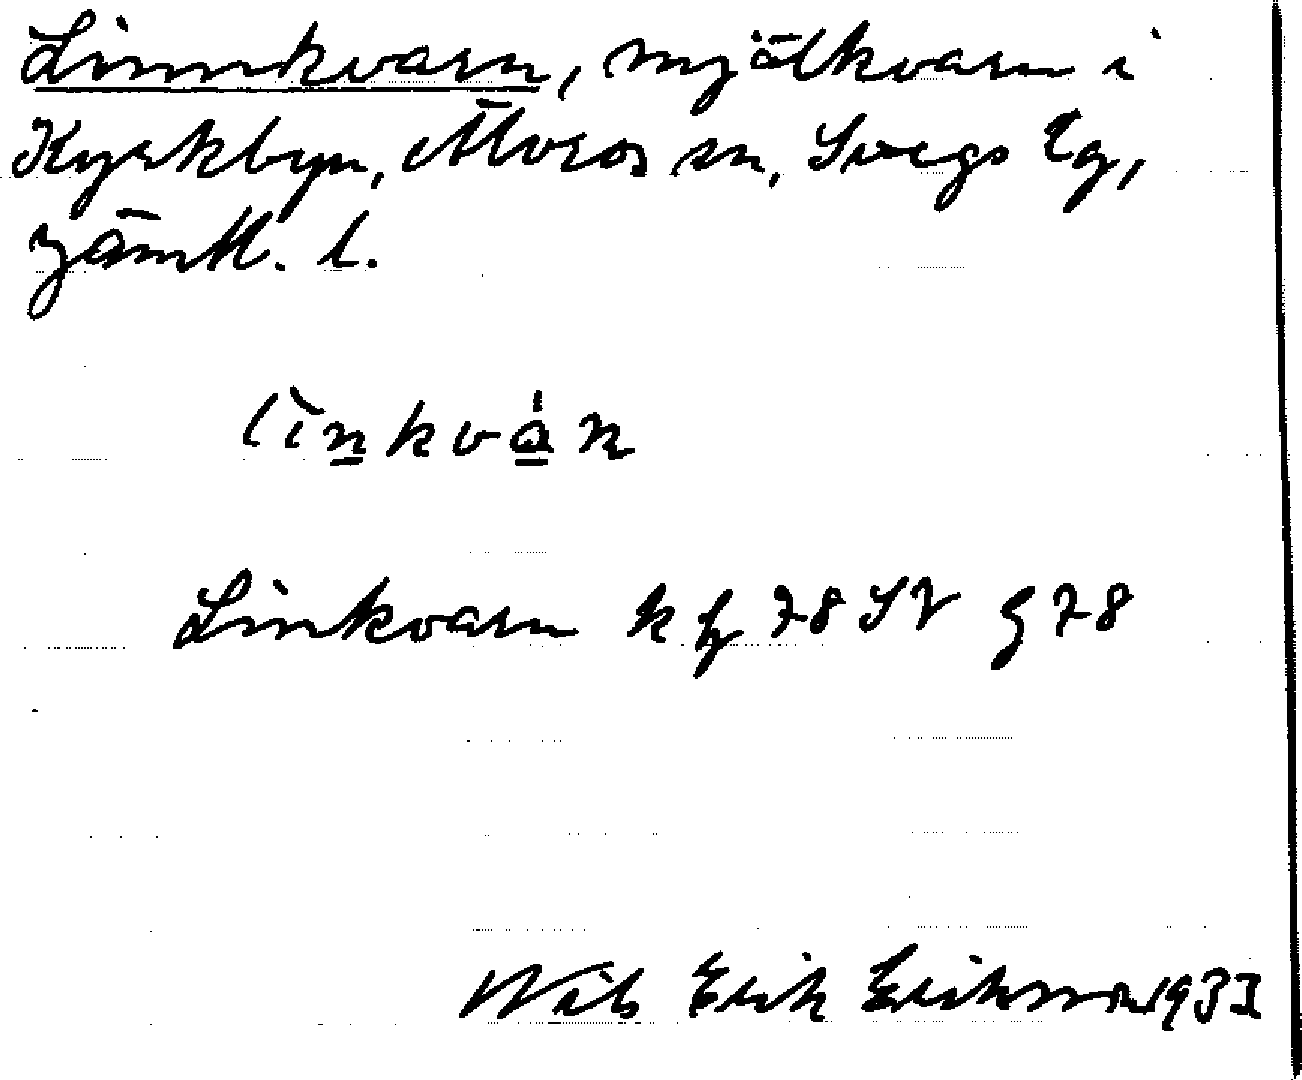 Linnkvarn, mjölkvarn i
Kyrkbyn, Älvros sn, Svegs tg,
Jämtl. l.
lìnkvàn
Linkvarn k bl 78 SV g 78
Nils Erik Eriksson 1933